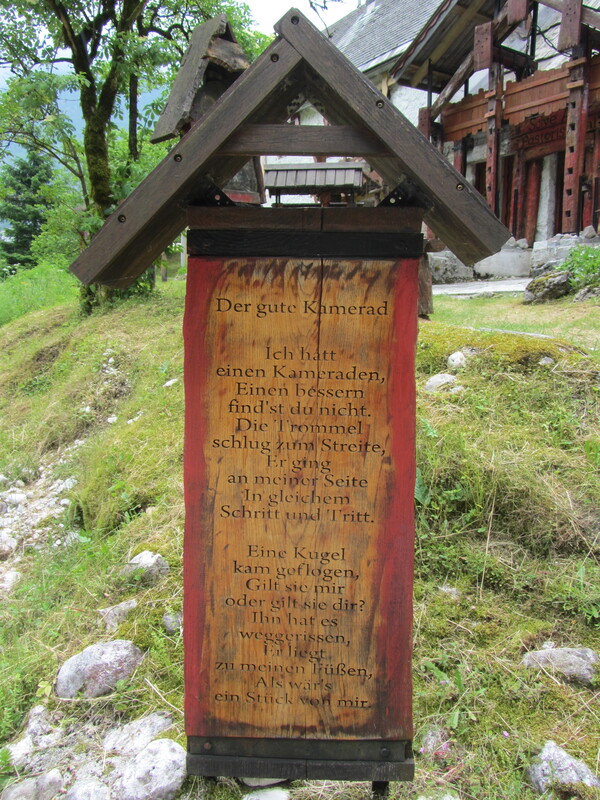 Der gute Kamerad
Ich hatt
einen Kameraden,
Einen bessern
find'st du nicht.
Die Trommel
schlug zum Streite,
Er ging
an meiner Seite
In gleichem
Schritt und Tritt.
Eine Kugel
kam goflogen,
Gilt sie mir
oder gilt sie dir?
Ihn hat es
weggerissen,
Er liegt
zu meinen Füßen,
Als wär's
ein Stück von mir.